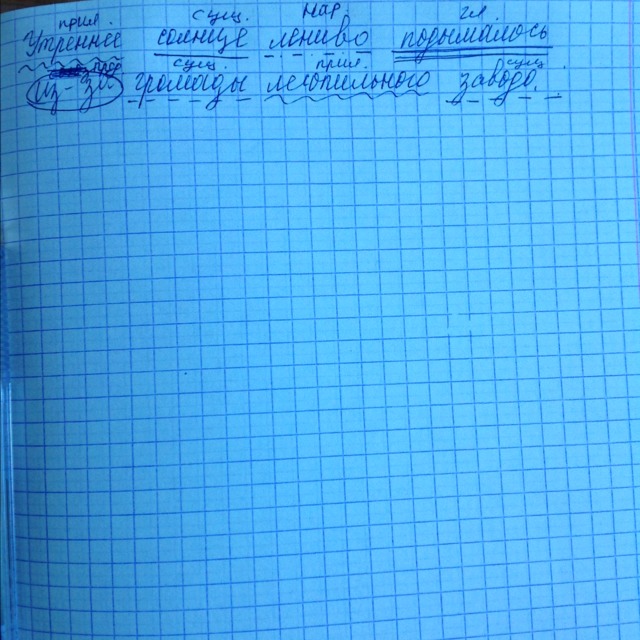 прил. сущ. нар. гл
Утреннее солнце лениво подымалось
сущ. прил. сущ.
из-за громады лесопильного завода.